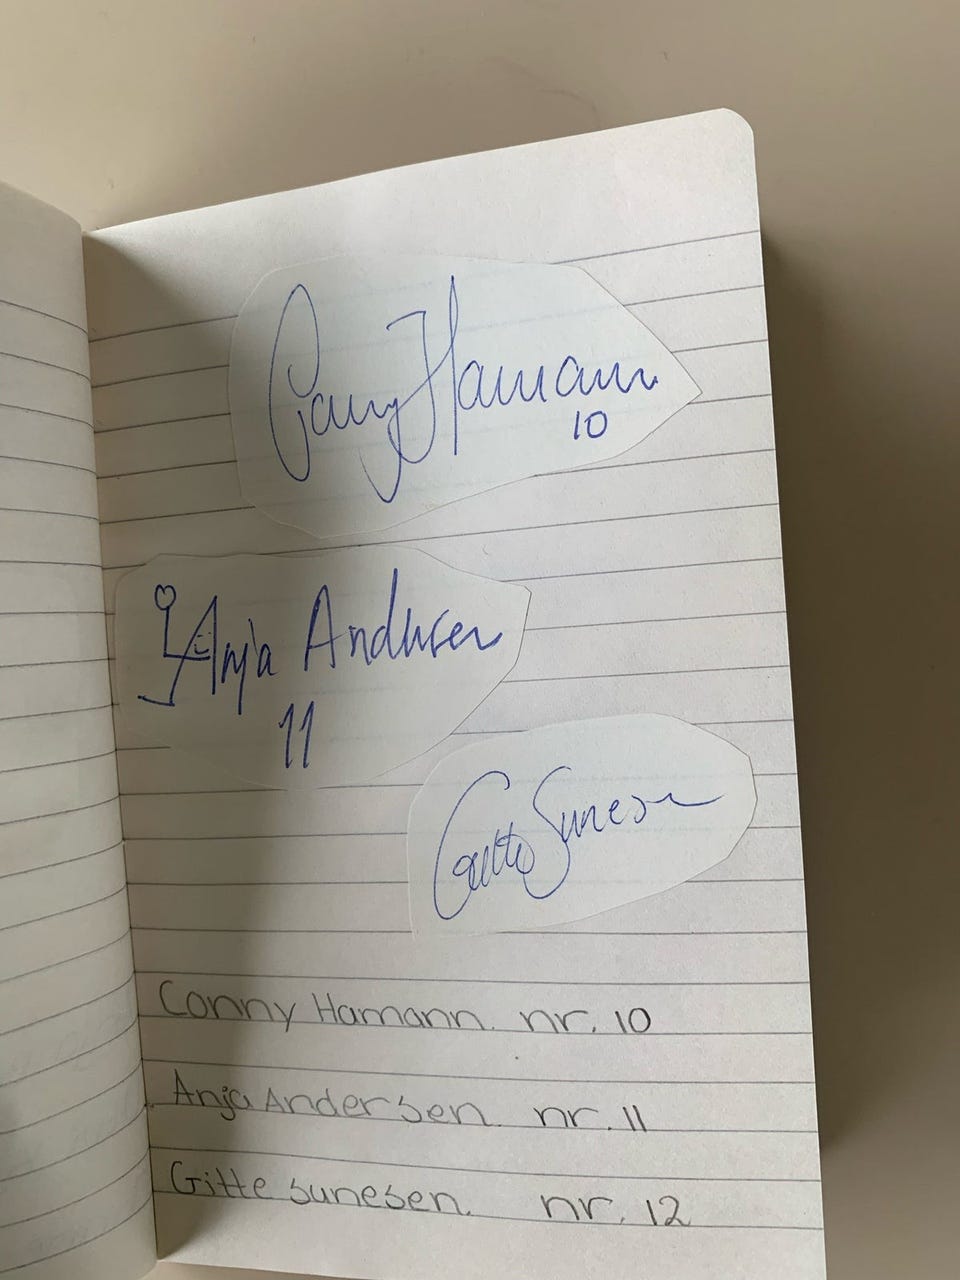 Conny Hamann
10
Anja Andersen
11
Gitte Sunesen
Conny Hamann. nr. 10
Anja Andersen. nr. 11
Gitte sunesen. nr. 12